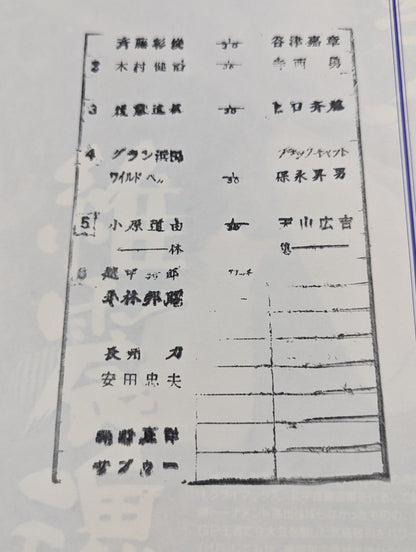 斉藤彰俊 30 谷津嘉章
2 木村健悟 30 寺西勇
3 後藤達俊 30 ヒロ斉藤
4 グラン浜田 ブラックキャット
ワイルド 30 保永昇男
5 小原道由 天山広吉
休 憩
6 越中詩郎
小林邦昭
長州力
安田忠夫
サブゥー